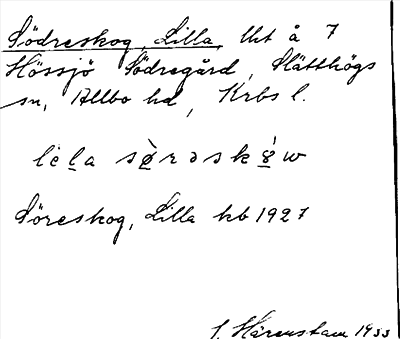 Södreskog, Lilla, lht å 7
Hössjö Södregård, Slätthögs
sn, Allbo hd, Krbs l.
lèla sø̀rəskó̤w
Söreskog, Lilla kb 1927
S. Härenstam 1933